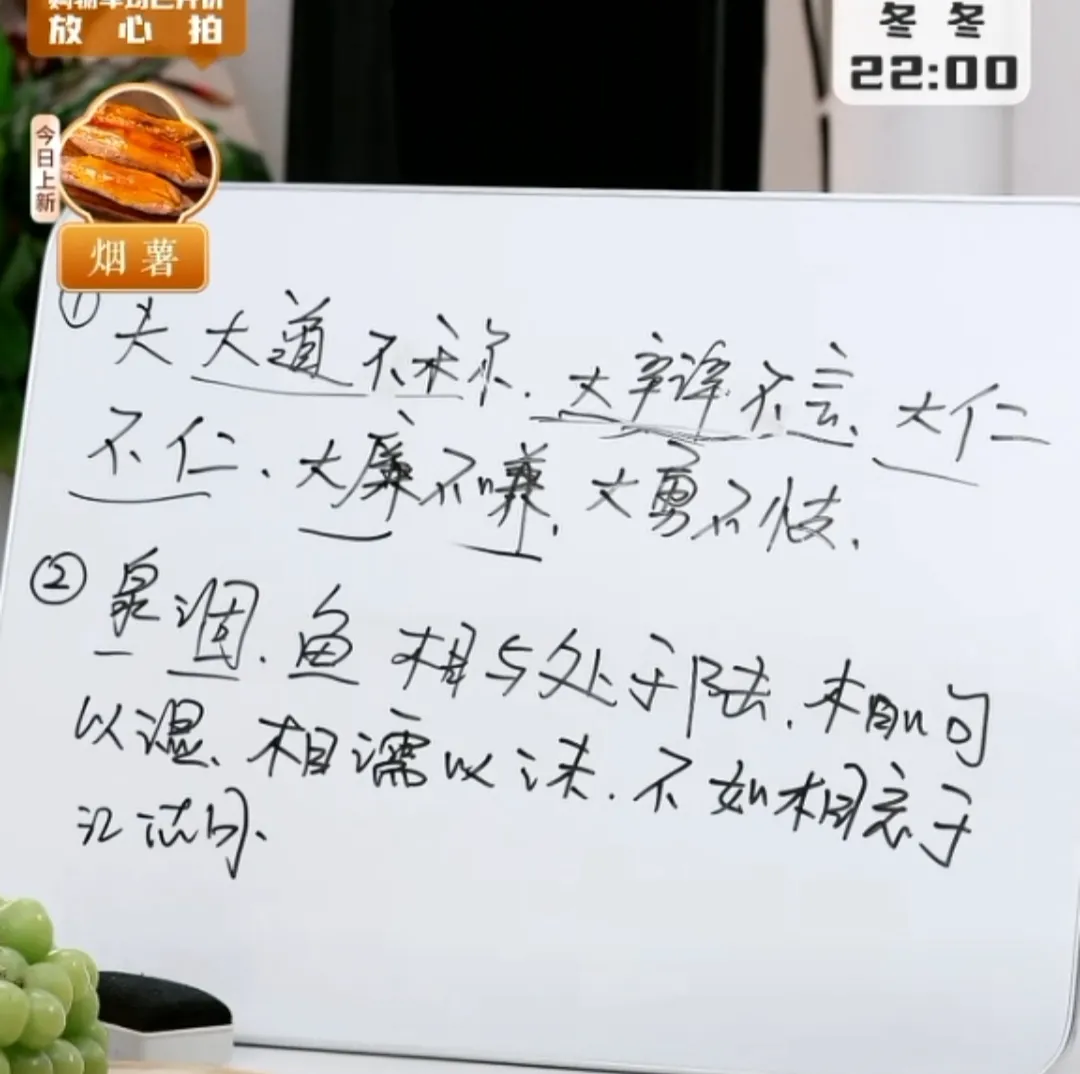 放心拍
冬冬
22:00
今日上新
烟薯
① 夫大道不称.大辩不言、大仁
不仁、大廉不嗛、大勇不忮、
② 泉涸.鱼相与处于陆、相呴
以湿、相濡以沫.不如相忘于
江湖、